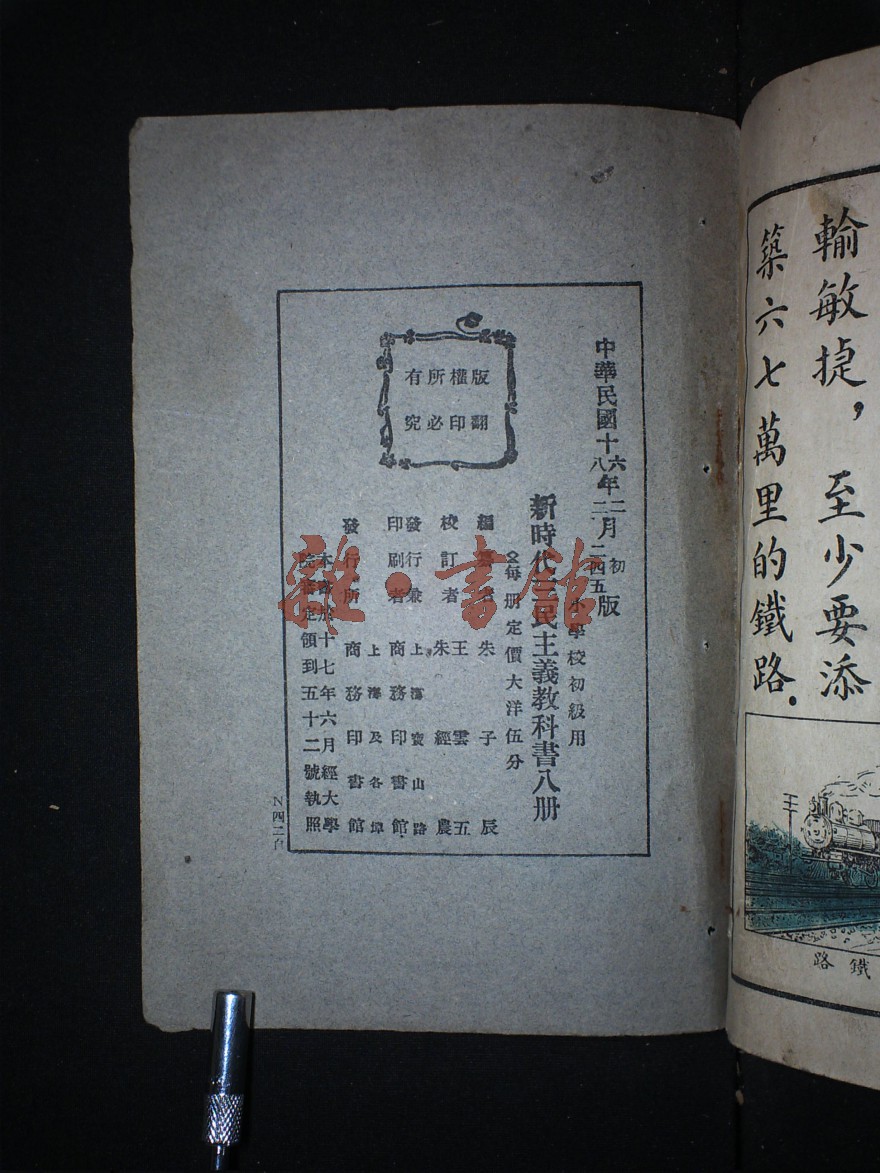 輸敏捷，至少要添
築六七萬里的鐵路.
鐵路
中華民國十六年二月初版
八 二 二四五
小學校初級用
新時代三民主義教科書八册
每册定價大洋伍分
版權所有
翻印必究
編纂者 朱子辰
校訂者 王雲五
朱經農
發行兼 上海寶山路
印刷者 商務印書館
發行所 上海及各埠
商務印書館
本書於十七年六月經大學
院審定領到五十二號執照
N四二台
雜·書館